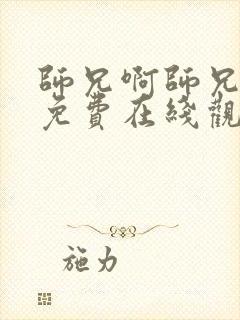 師兄啊師兄
免費在綫觀
施力